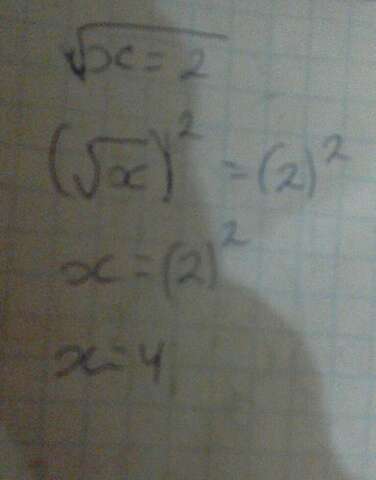 √x = 2
(√x)² = (2)²
x = (2)²
x = 4